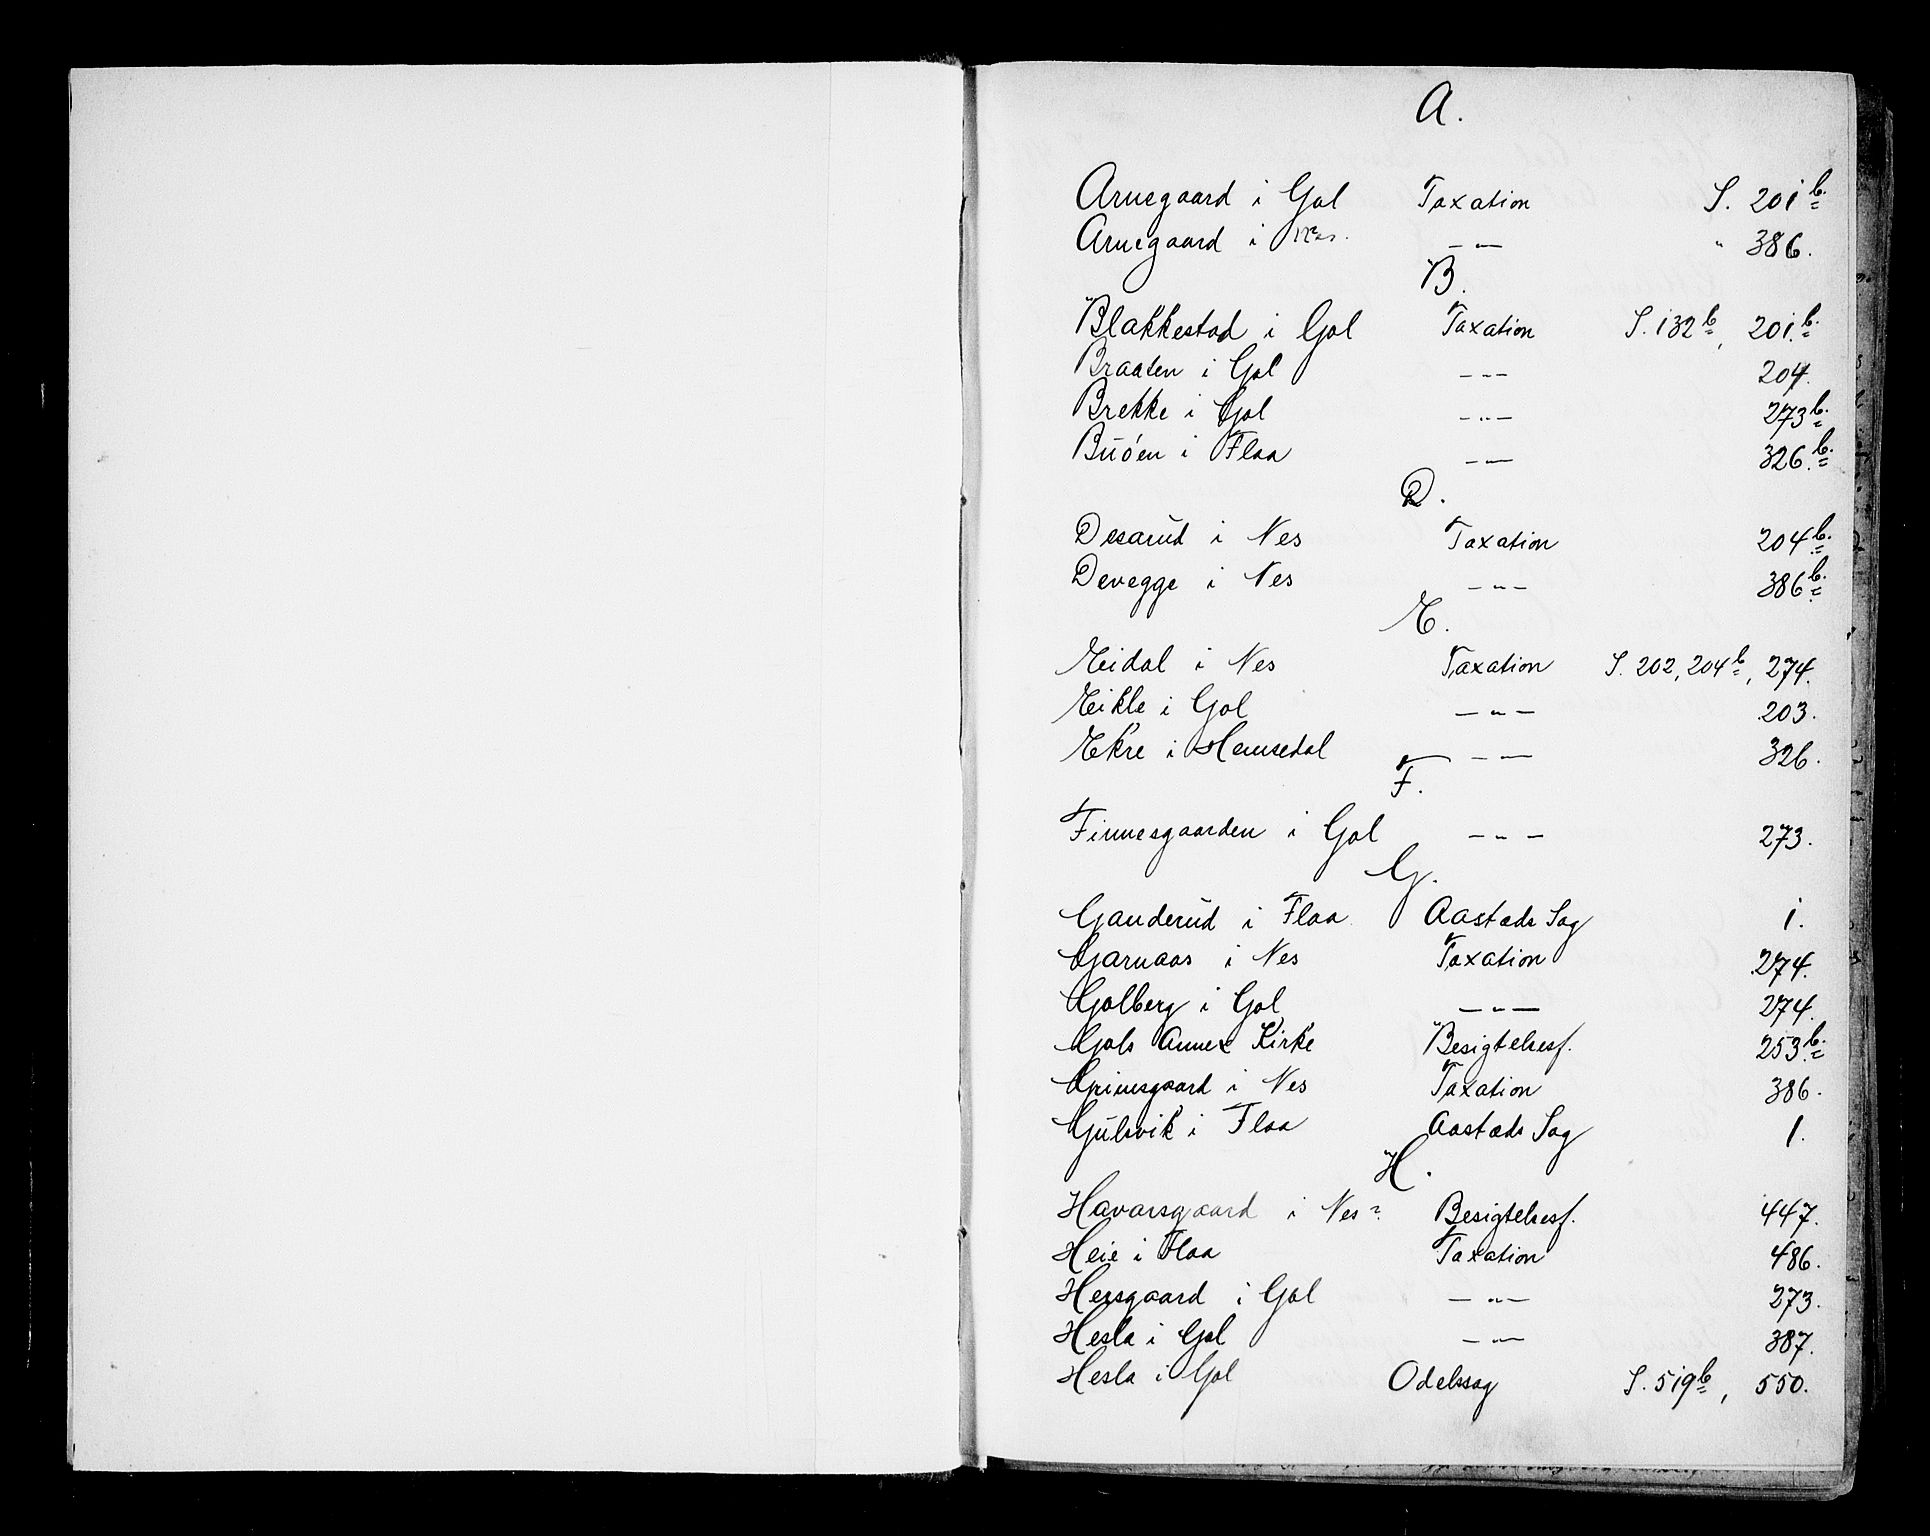 A.
Arnegaard i Gol Taxation S. 201 b.
Arnegaard i Nes. —"— " 386.
B.
Blakkestad i Gol Taxation S. 132 b, 201. b.
Braaten i Gol —"— 204.
Brekke i Gol —"— 273 b.
Buöen i Flaa —"— 326. b.
D.
Desarud i Nes Taxation 204 b.
Devegge i Nes —"— 386 b.
E.
Eidal i Nes Taxation S. 202, 204 b, 274.
Eikle i Gol —"— 203.
Ekre i Hemsedal —"— 326.
F.
Finnesgaarden i Gol —"— 273.
G.
Ganderud i Flaa Aastæds Sag 1.
Garnaas i Nes Taxation 274.
Golberg i Gol —"— 274.
Gols Annex Kirke Besigtelsesf. 253. b.
Grimsgaard i Nes Taxation 386.
Gulsvik i Flaa Aastæds Sag 1.
H.
Havarsgaard i Nes? Besigtelsesf. 447.
Heie i Flaa Taxation 486.
Hersgaard i Gol —"— 273.
Hesla i Gol —"— 387.
Hesla i Gol Odelssag S. 519 b, 550.